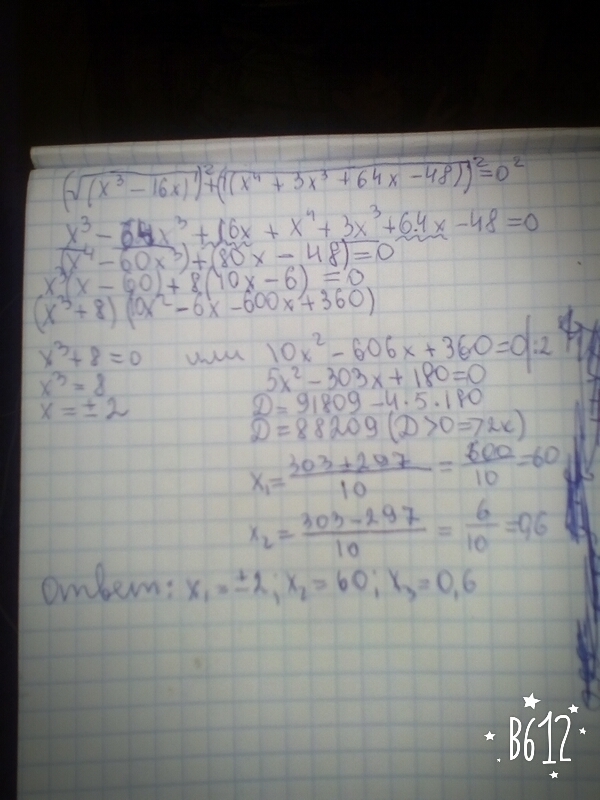 (√(x³ − 16x))² + (√(x⁴ + 3x³ + 64x − 48))² = 0²
x³ − 64x³ + 16x + x⁴ + 3x³ + 64x − 48 = 0
(x⁴ − 60x³) + (80x − 48) = 0
x³(x − 60) + 8(10x − 6) = 0
(x³ + 8)(10x² − 6x − 600x + 360)
x³ + 8 = 0 или 10x² − 606x + 360 = 0 |:2
x³ = 8 5x² − 303x + 180 = 0
x = ± 2 D = 91809 − 4·5·180
D = 88209 (D > 0 => 2x)
x₁ = (303 + 297)/10 = 600/10 = 60
x₂ = (303 − 297)/10 = 6/10 = 0,6
Ответ: x₁ = ±2; x₂ = 60; x₃ = 0,6
B612